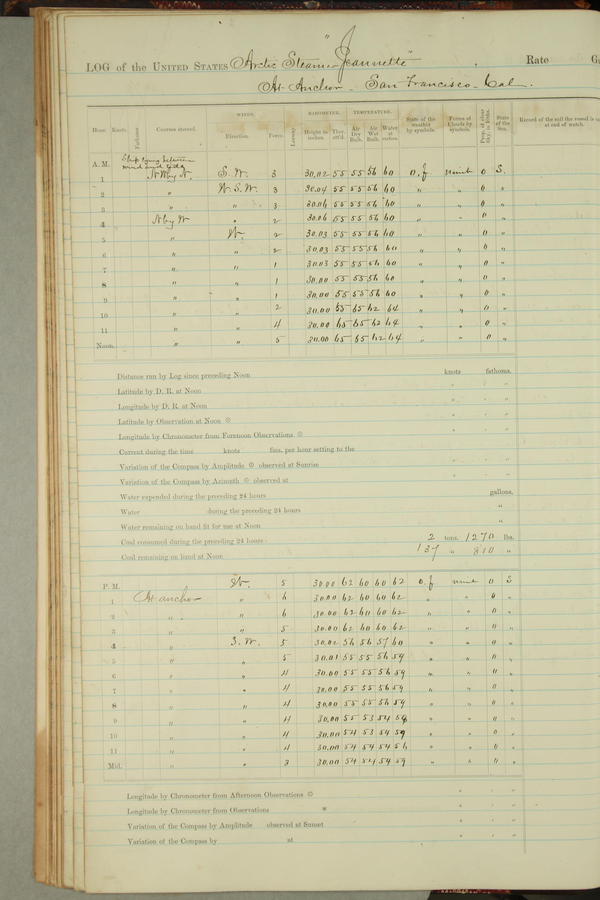 LOG of the UNITED STATES Arctic Steamer "Jeannette" Rate
At Anchor - San Francisco - Cal.
WINDS. BAROMETER. TEMPERATURE.
Hour. Knots. Fathoms Courses steered. Direction. Force. Leeway Height in inches. Ther. att'd. Air Dry Bulb. Air Wet Bulb. Water at surface. State of the weather by symbols. Forms of Clouds by symbols. Prop. of clear Sky, in 10ths. State of the Sea. Record of the sail the vessel is under at end of watch.
A. M. Ship lying between
wind and tide
1 N. W by N. S. W. 3 30.02 55 55 56 60 O. f. nimb 0 S.
2 " W. S. W. 3 30.04 55 55 56 60 " " 0 "
3 " " 3 30.06 55 55 56 60 " " 0 "
4 N by W " 2 30.06 55 55 56 60 " " 0 "
5 " W. 2 30.03 55 55 56 60 " " 0 "
6 " " 2 30.03 55 55 56 60 " " 0 "
7 " " 1 30.03 55 55 56 60 " " 0 "
8 " " 1 30.00 55 55 56 60 " " 0 "
9 " " 1 30.00 55 55 56 60 " " 0 "
10 " " 2 30.00 65 65 62 64 " " 0 "
11 " " 4 30.00 65 65 62 64 " " 0 "
Noon. " " 5 30.00 65 65 62 64 " " 0 "
Distance run by Log since preceding Noon knots fathoms.
Latitude by D. R. at Noon
Longitude by D. R. at Noon
Latitude by Observation at Noon
Longitude by Chronometer from Forenoon Observations
Current during the time knots fms. per hour setting to the
Variation of the Compass by Amplitude observed at Sunrise
Variation of the Compass by Azimuth observed at
Water expended during the preceding 24 hours gallons.
Water during the preceding 24 hours "
Water remaining on hand fit for use at Noon "
Coal consumed during the preceding 24 hours 2 tons. 1270 lbs.
Coal remaining on hand at Noon 137 " 810 "
P. M. W. 5 30.00 62 60 60 62 O. f. nimb 0 S
1 At anchor " 6 30.00 62 60 60 62 " " 0 "
2 " " 6 30.00 62 60 60 62 " " 0 "
3 " " 5 30.00 62 60 60 62 " " 0 "
4 " S. W. 5 30.02 56 56 57 60 " " 0 "
5 " " 5 30.01 55 55 56 59 " " 0 "
6 " " 4 30.00 55 55 56 59 " " 0 "
7 " " 4 30.00 55 55 56 59 " " 0 "
8 " " 4 30.00 55 55 56 59 " " 0 "
9 " " 4 30.00 55 53 54 58 " " 0 "
10 " " 4 30.00 54 53 54 59 " " 0 "
11 " " 4 30.00 54 54 54 56 " " 0 "
Mid. " " 3 30.00 54 54 54 59 " " 0 "
Longitude by Chronometer from Afternoon Observations
Longitude by Chronometer from Observations
Variation of the Compass by Amplitude observed at Sunset
Variation of the Compass by at